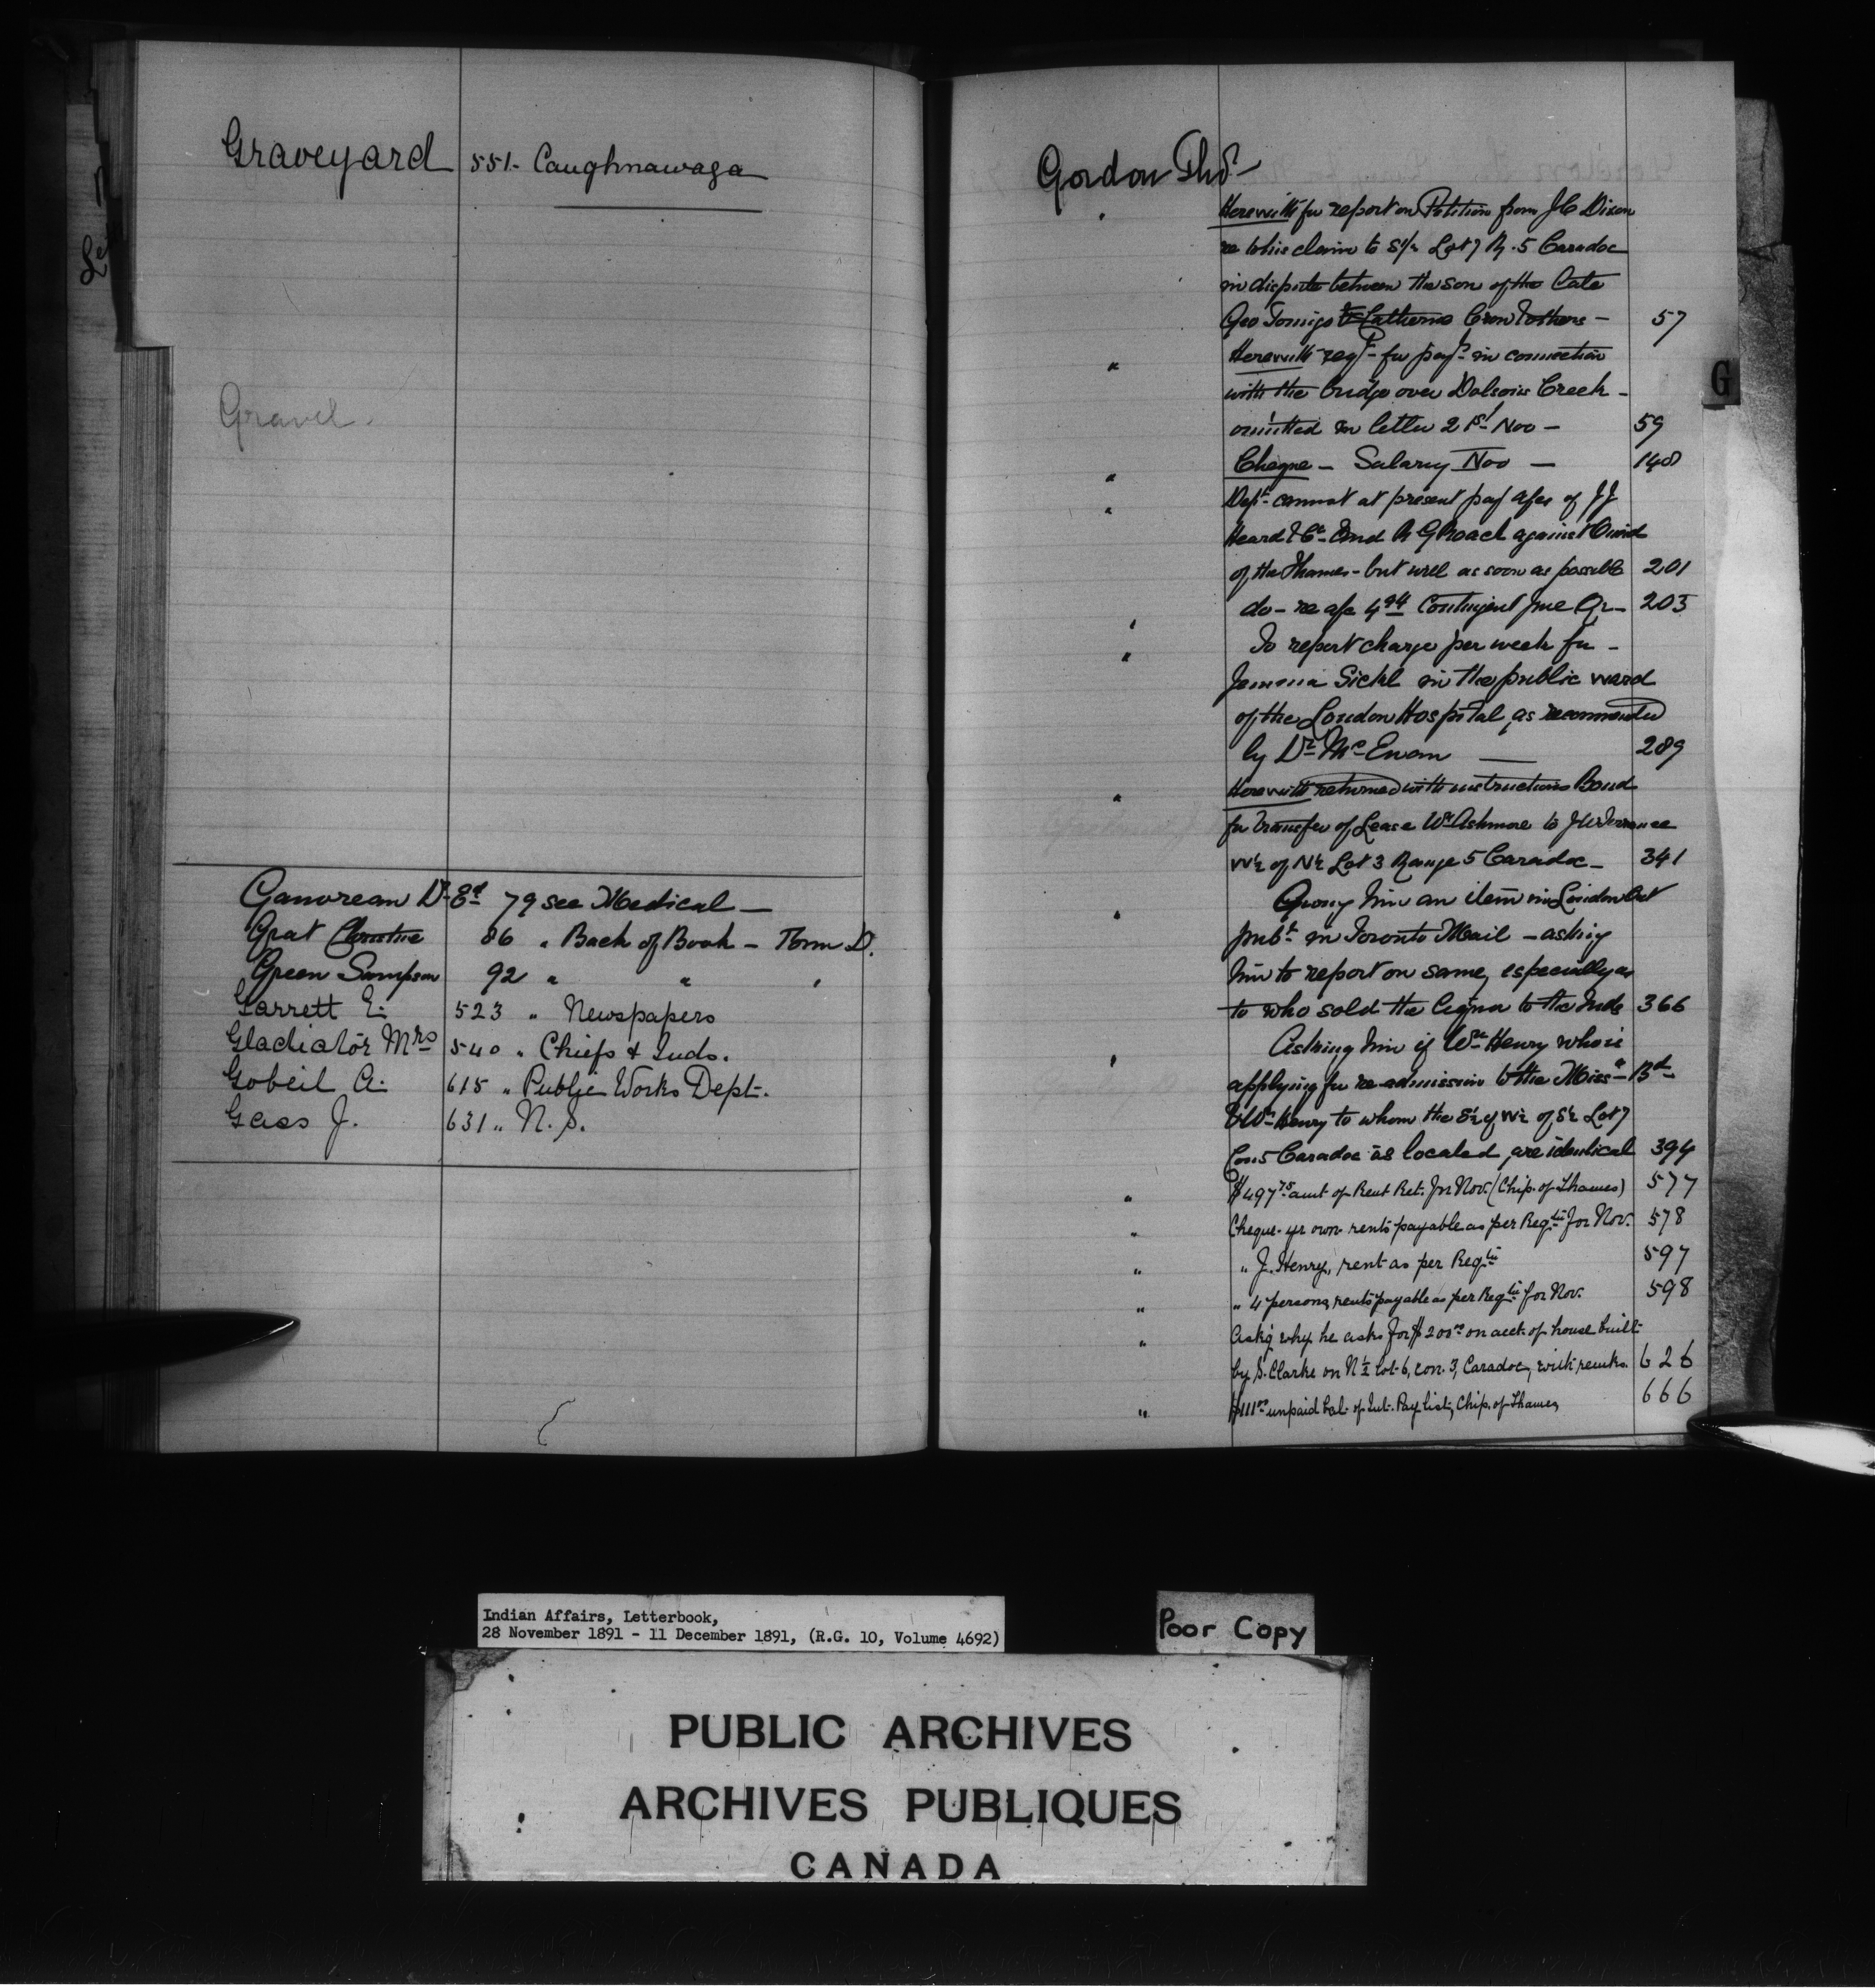 Graveyard 551- Caughnawaga
Gravel.
D.r Ed 79 see Medical —
Grat Christine 86 " Back of Book - Form D.
Green Sampson 92 " " "
Garrett E. 523 " Newspapers
Gladiator Mrs 540 " Chiefs & Inds.
Gobeil A. 615 " Public Works Dept.
Gass J. 631 " N. S.
Gordon Thos
Herewith for report on Petition from J C Dixon
re to his claim to S½ Lot 7 R. 5 Caradoc
in dispute between the son of the late
Geo Tomigo & Catherine Crow & others — 57
" Herewith reqn for payt in connection
with the bridge over Dolsons Creek -
omitted in letter 21st Nov — 59
" Cheque — Salary Nov — 140
" Dept cannot at present pay a/cs of J J
Heard & Co and R G Roach against
of the Thames - but will as soon as possible 201
" do - re a/c Contingent June Qr - 203
" To report charge per week for -
Jemima Sickl in the public ward
of the London Hospital, as recommended
by Dr McEwan — 289
" Herewith returned with instructions Bond
for transfer of Lease Wm Ashmore to
W½ of N½ Lot 3 Range 5 Caradoc - 341
" him an item in London
pubd in Toronto Mail - asking
him to report on same, especially as
to who sold the liquor to the Inds 366
" Asking him if Wm Henry who is
applying for re-admission to the Missa Bd
& Wm Henry to whom the S½ of W½ of S½ Lot 7
Con 5 Caradoc is located, are identical 394
" $497.75 amt of Rent Ret. for Nov. (Chip. of Thames) 577
" Cheque - yr own rents payable as per Reqtn for Nov. 578
" " J. Henry, rent as per Reqtn 597
" " 4 persons, rents payable as per Reqtn for Nov. 598
" Ask'g why he asks for $200.00 on acct. of house built
by S. Clarke on N½ Lot 6, con. 3, Caradoc, with remks. 626
" $111.00 unpaid bal. of Int. Pay list, Chip. of Thames 666
G
Indian Affairs, Letterbook,
28 November 1891 - 11 December 1891, (R.G. 10, Volume 4692)
Poor Copy
PUBLIC ARCHIVES
ARCHIVES PUBLIQUES
CANADA